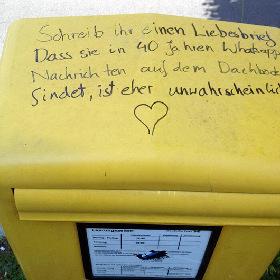 Schreib ihr einen Liebesbrief
Dass sie in 40 Jahren Whatsapp
Nachrichten auf dem Dachboden
findet, ist eher unwahrscheinlich